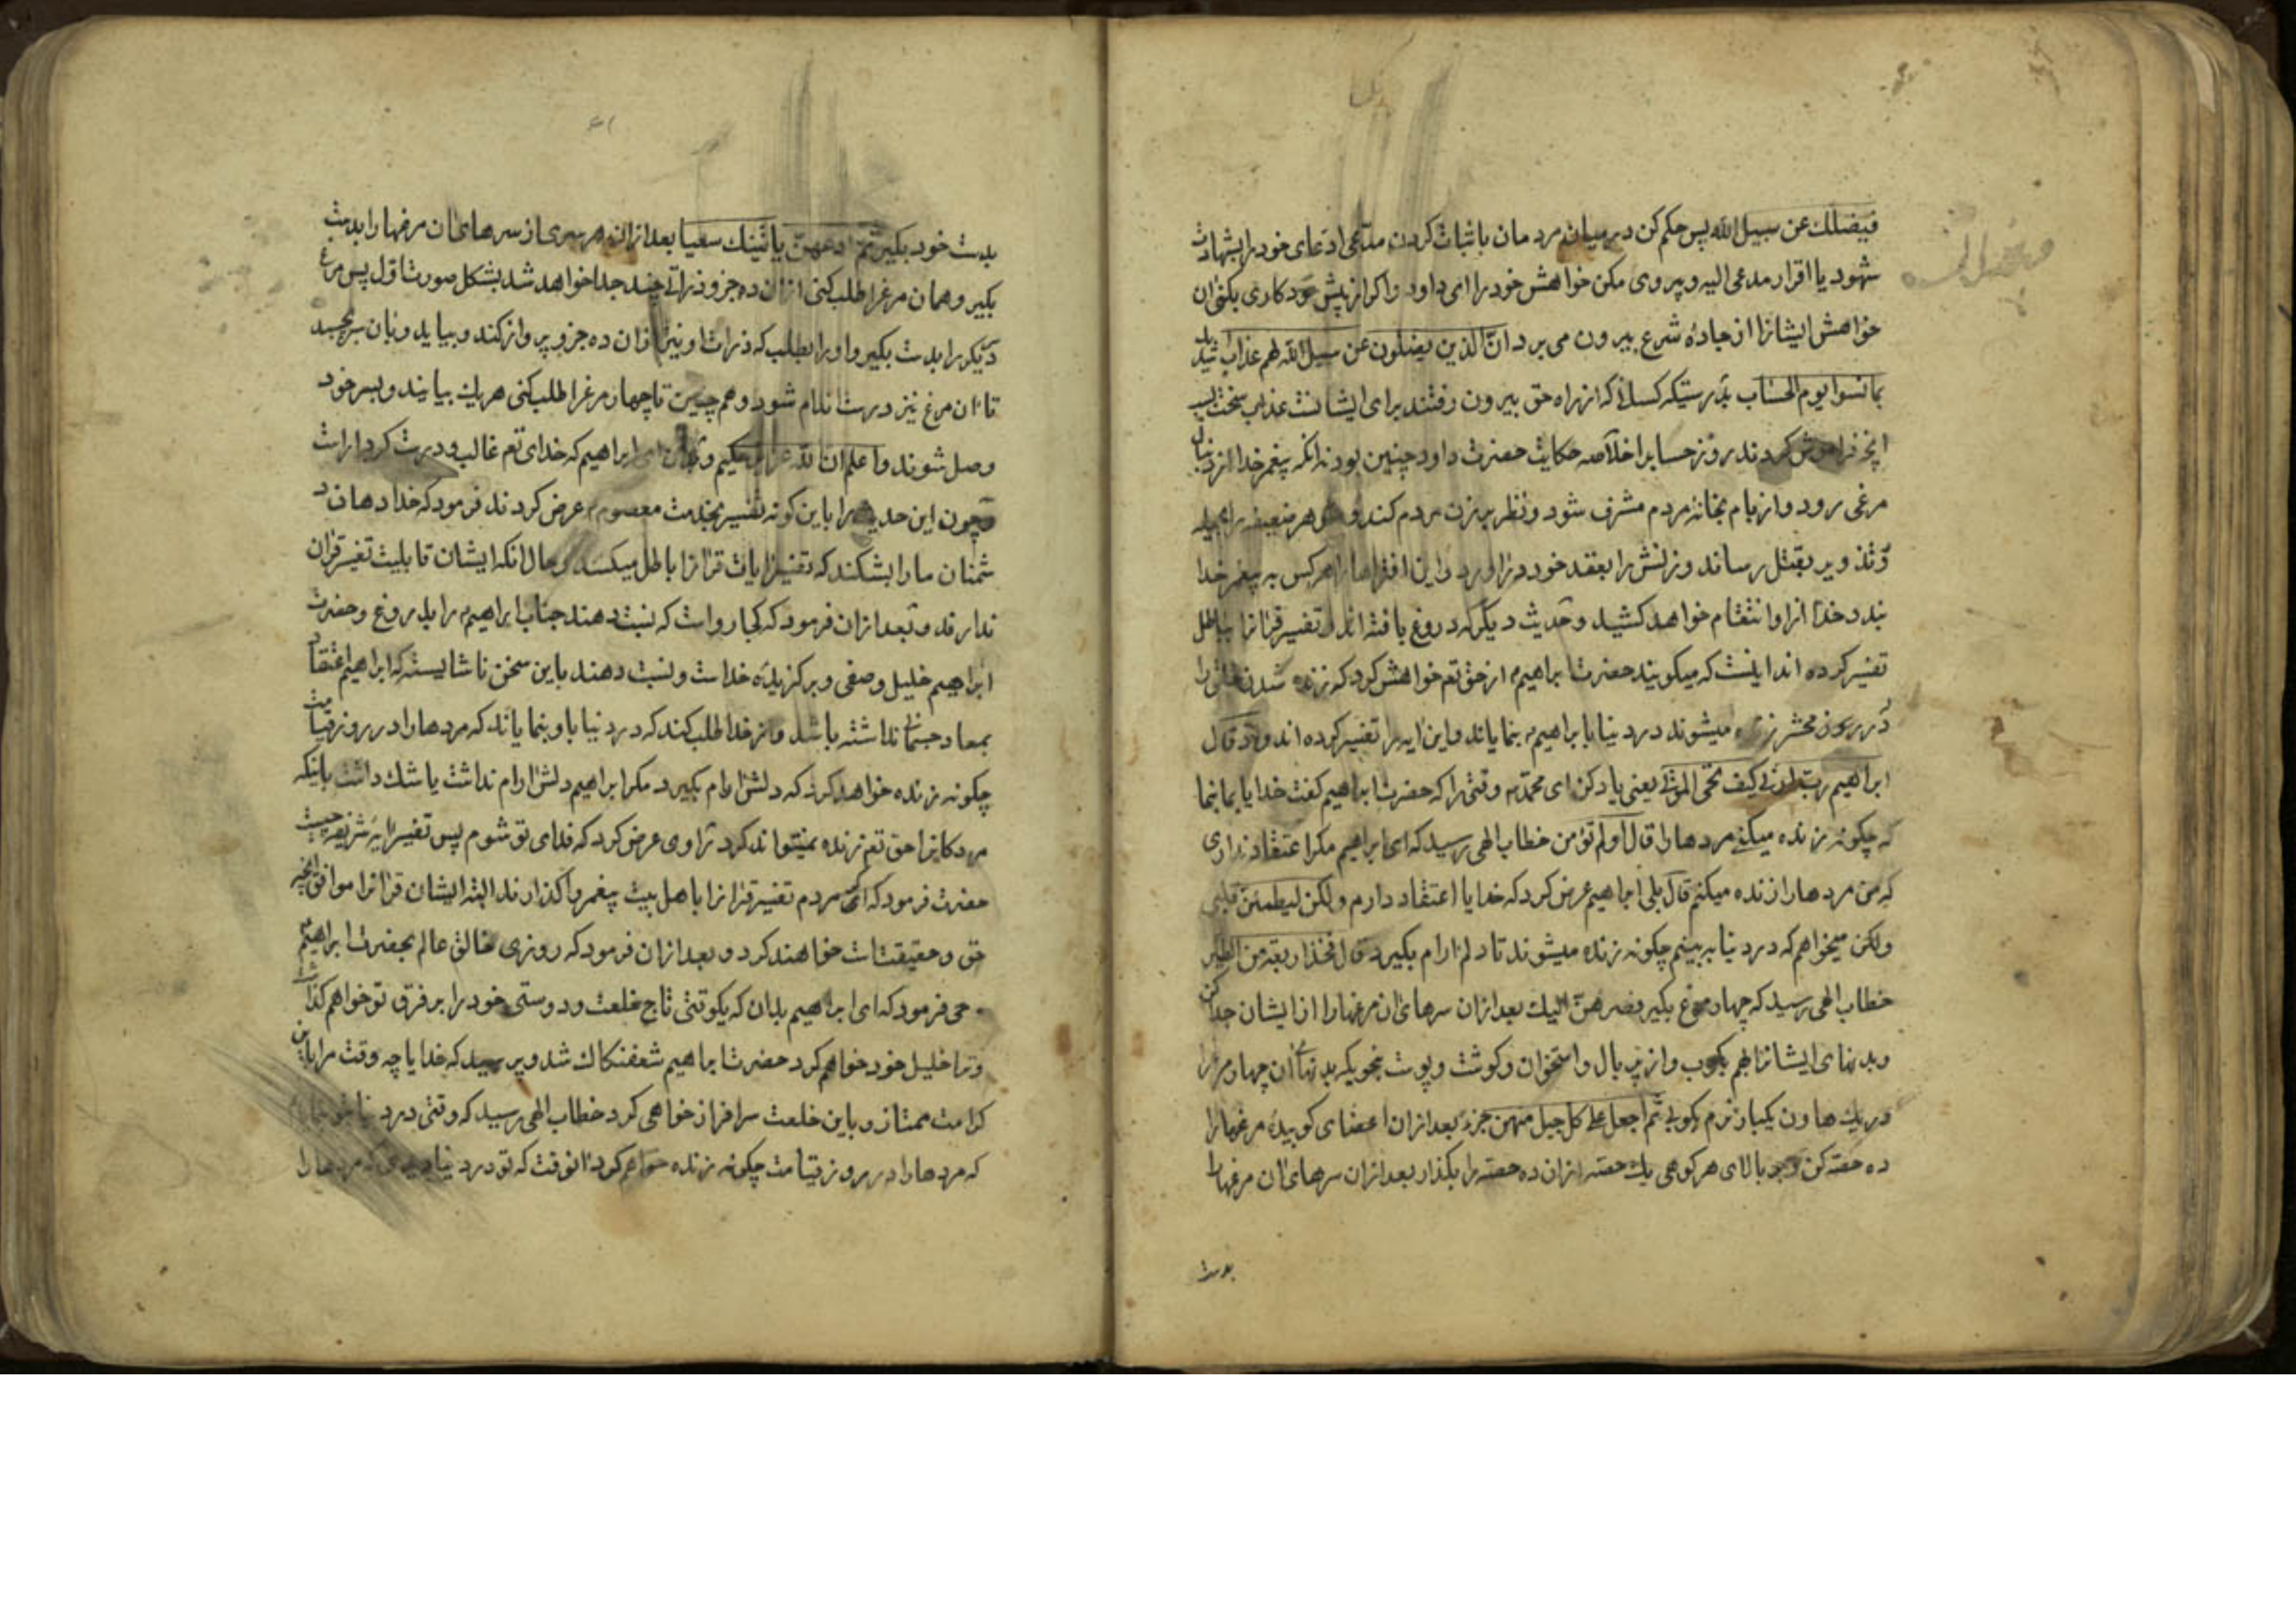 فیضلك عن سبیل الله پس حکم کن در میان مردمان باثبات کردن مدّعی ادعای خود را بشهادت
شهود یا اقرار مدعی الیه و پیروی مکن خواهش خود را ای داود و اکر از پیش خود کاری بکنی ان
خواهش ایشانرا از جادهٔ شرع بیرون می برد انّ الذین یضلون عن سبیل الله لهم عذاب شدید
بما نسوا یوم الحساب بدرستیکه کسانی که از راه حق بیرون رفتند برای ایشانست عذاب سخت بسبب
انچه فراموش کردند روز حساب را خلاصه حکایت حضرت داود چنین بود نه انکه پیغمبر خدا از دنبال
مرغی رود و از بام بخانهٔ مردم مشرف شود و نظر بر زن مردم کند و شوهر ضعیفه را بحیله
و تذویر بقتل رساند و زنش را بعقد خود در اورد و این افتراها را هرکس بر پیغمبر خدا
بندد خدا از او انتقام خواهد کشید و حدیث دیکر که دروغ بافته اند و تفسیر قرانرا بباطل
تفسیر کرده اند اینست که میکویند حضرت ابراهیم از حق تعم خواهش کرد که زنده شدن خلق را
در روز محشر زنده میشوند در دنیا بابراهیم بنمایاند و این ایه را تفسیر کرده اند و اذ قال
ابراهیم ربّ ارنی کیف تحی الموتی یعنی یاد کن ای محمد وقتی را که حضرت ابراهیم کفت خدایا بما بنما
که چکونه زنده میکنی مردها را قال اولم تؤمن خطاب الهی رسید که ای ابراهیم مکر اعتقاد نداری
که من مردها را زنده میکنم قال بلی ابراهیم عرض کرد که خدایا اعتقاد دارم و لکن لیطمئن قلبی
ولکن میخواهم که در دنیا ببینم چکونه زنده میشوند تا دلم ارام بکیرد قال فخذ اربعة من الطیر
خطاب الهی رسید که چهار مرغ بکیر فصرهنّ الیك بعد ازان سرهای ان مرغها را از ایشان جدا کن
و بدنهای ایشانرا بهم بکوب و از پر بال و استخوان و کوشت و پوست بنحویکه بدنهای ان چهار مرغ را
در یك هاون یکبار نرم بکوبی ثم اجعل علی کل جبل منهن جزء بعد ازان اعضای کوبیدهٔ مرغها را
ده حصّه کن و بر بالای هر کوهی یك حصّه ازان ده حصّه را بکذار بعد ازان سرهای ان مرغها را
بدست
بدست خود بکیر ثم ادعهنّ یأتینك سعیا بعد ازان هر سری از سرهای ان مرغها را بدست
بکیر و همان مرغ را طلب کنی ازان ده جزو ذراتی چند جدا خواهد شد بشکل صورت اوّل پس مرغ
دیکر را بدست بکیر و او را بطلب که ذرات او نیز ازان ده جزو پرواز کند و بیاید و بان سر بچسبد
تا ان مرغ نیز درست اندام شود و همچنین تا چهار مرغ را طلب کنی هریك بیایند و بسر خود
وصل شوند و اعلم ان الله عزیز حکیم و بدان ای ابراهیم که خدای تعم غالب و درست کردار است
و چون این حدیث را باین کونه تفسیر بخدمت معصوم عرض کردند فرمود که خدا دهان د
شمنان ما را بشکند که تفسیر ایات قرانرا باطل میکنند و حال انکه ایشان قابلیت تفسیر قران
ندارند و بعد ازان فرمود که کجا رواست که نسبت دهند جناب ابراهیم را بدروغ و حضرت
ابراهیم خلیل و صفی و برکزیدهٔ خداست و نسبت دهند باین سخن ناشایسته که ابراهیم اعتقاد
بمعاد جسمانی نداشته باشد و از خدا طلب کند که در دنیا باو بنمایاند که مردها را در روز قیامت
چکونه زنده خواهد کرد که دلش ارام بکیرد مکر ابراهیم دلش ارام نداشت یا شك داشت باینکه
مردکانرا حق تعم زنده نمیتواند کرد راوی عرض کرد که فدای تو شوم پس تفسیر ایهٔ شریفه چیست
حضرت فرمود که اکر مردم تفسیر قرانرا باهل بیت پیغمبر واکذارند البته ایشان قرانرا موافق انچه
حق و حقیقتست خواهند کرد و بعد ازان فرمود که روزی خالق عالم بحضرت ابراهیم
وحی فرمود که ای ابراهیم بدان که یکوقتی تاج خلعت و دوستی خود را بر فرق تو خواهم کذاشت
و ترا خلیل خود خواهم کرد حضرت ابراهیم شعفناك شد و پرسید که خدایا چه وقت مرا باین
کرامت ممتاز و باین خلعت سرافراز خواهی کرد خطاب الهی رسید که وقتی در دنیا
که مردها را در روز قیامت چکونه زنده خواهم کرد انوقت که تو در دنیا مردها را